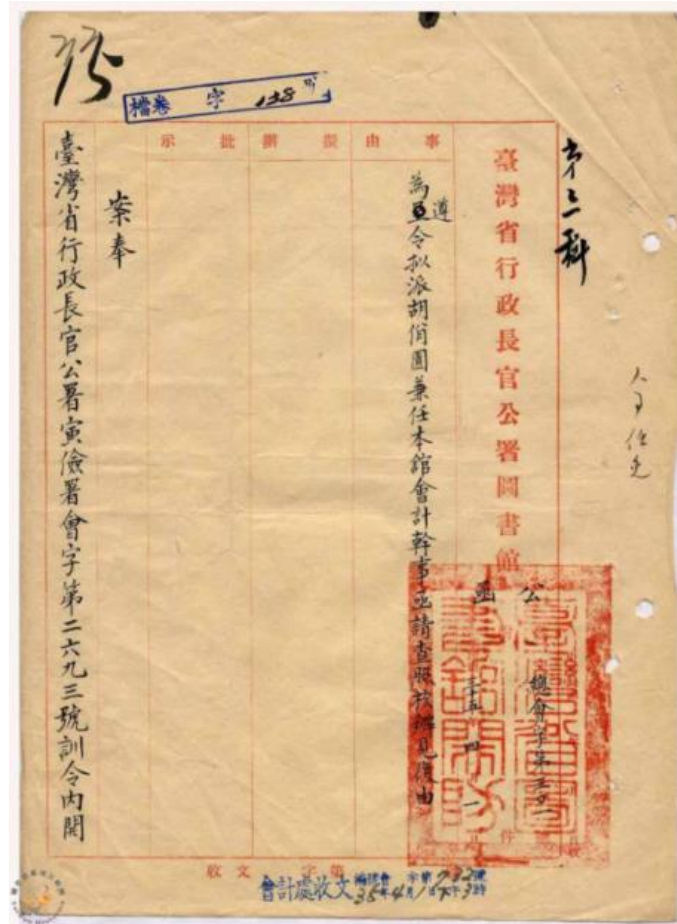 檔卷 字 138 號
第三科
人事任免
臺灣省行政長官公署圖書館
公函
總會字第
事由
擬辦
批示
為遵令拟派胡俏圓兼任本館會計幹事函請查照核辦見復由
案奉
臺灣省行政長官公署寅儉署會字第二六九三號訓令內開
收文 字第
會計處收文
35年4月1日下午3時